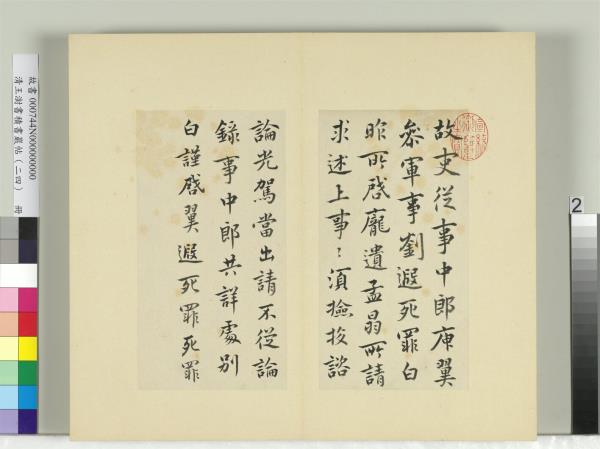 故吏從事中郎庾翼
參軍事劉遐死罪白
昨所啓龐遺孟昌所請
求述上事〻須撿挍諮
論光駕當出請不從論
錄事中郎共詳處別
白謹啓翼遐死罪死罪
故書 000744N000000000
清王澍書積書巖帖（二四） 冊
2